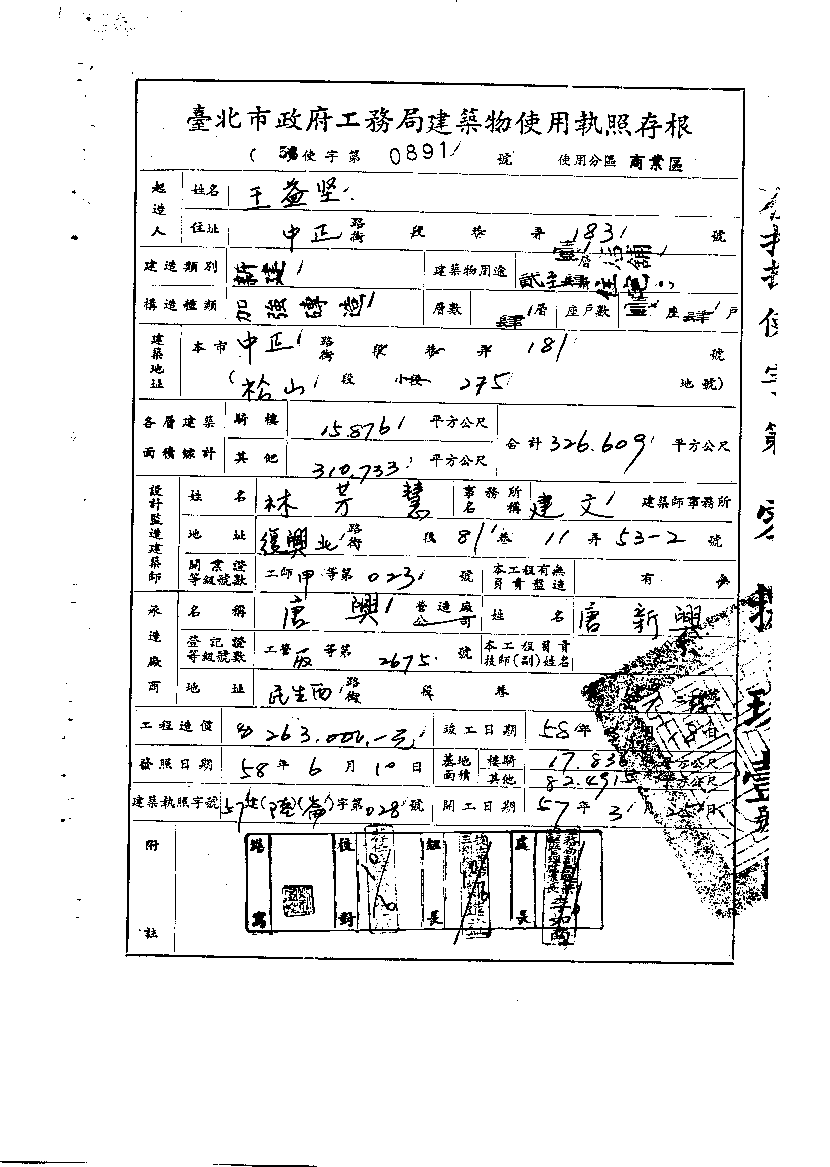 臺北市政府工務局建築物使用執照存根
(58使字第 0891 號 使用分區 商業區
起造人 姓名 王益堅
住址 中正 路街 段 巷 弄 183 號
建造類別 新建 建築物用途 壹層店舖 貳至肆層住宅
構造種類 加強磚造 層數 肆層 座戶數 壹座肆戶
建築地址 本市 中正 路街 段 巷 弄 181 號
(松山 段 小段 275 地號)
各層建築面積總計 騎樓 15.876 平方公尺 合計 326.609 平方公尺
其他 310.733 平方公尺
設計監造建築師 姓名 林芳慧 事務所名稱 建文 建築師事務所
地址 復興北 路街 段 81 巷 11 弄 53-2 號
開業證等級號數 工師 甲 等第 023 號 本工程有無負責監造 有 無
承造廠商 名稱 唐興 營造廠公司 姓名 唐新興
登記證等級號數 工營 丙 等第 2675 號 本工程負責技師(副)姓名
地址 民生西 路街 段 巷
工程造價 263,000,-元 竣工日期 58年 18日
發照日期 58年6月10日 基地面積 騎樓 17.836 平方公尺
其他 82.4915 平方公尺
建築執照字號 57建(陸)(崙)字第028號 開工日期 57年3月25日
附註